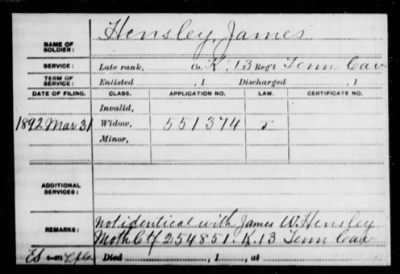 NAME OF SOLDIER: Hensley, James
SERVICE: Late rank, Co. K. 13 Reg't Tenn Cav
TERM OF SERVICE: Enlisted , 1 Discharged , 1
DATE OF FILING. CLASS. APPLICATION NO. LAW. CERTIFICATE NO.
Invalid,
1892 Mar 31 Widow, 551374
Minor,
ADDITIONAL SERVICES:
REMARKS: Not identical with James W. Hensley
Moth Ctf 254851. K. 13 Tenn Cav
Died , 1 , at